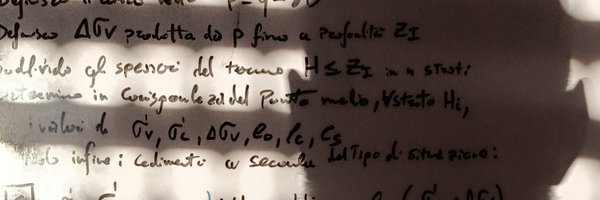 Definisco il carico netto p = q -
Definisco Δσv prodotta da p fino a profondità ZI
Suddivido gli spessori del terreno H ≤ ZI in n strati
Determino in corrispondenza del Punto medio, ∀strato Hi,
i valori di σ'v, σ'c, Δσv, e0, Cc, Cs
infine i cedimenti a seconda del Tipo di situazione: